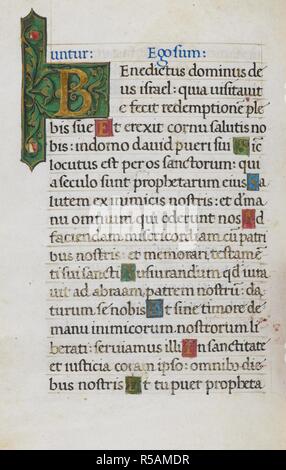 untur: Ego sum:
Benedictus dominus de
us israel: quia uisitauit
et fecit redemptionē ple
bis sue Et erexit cornu salutis no
bis: in domo dauid pueri sui Sic
locutus est per os sanctorum: qui
a seculo sunt prophetarum eius Sa
lutem ex inimicis nostris: et d'ma
nu omnium qui oderunt nos Ad
faciendam misericordiam cū patri
bus nostris: et memorari testamē
ti sui sancti Iusiurandum qd iura
uit ad abraam patrem nostrū: da
turum se nobis Ut sine timore de
manu inimicorum nostrorum li
berati: seruiamus illi In sanctitate
et iusticia coram ipso: omnibꝰ die
bus nostris Et tu puer propheta
alamy
Image ID: R5AMDR
www.alamy.com